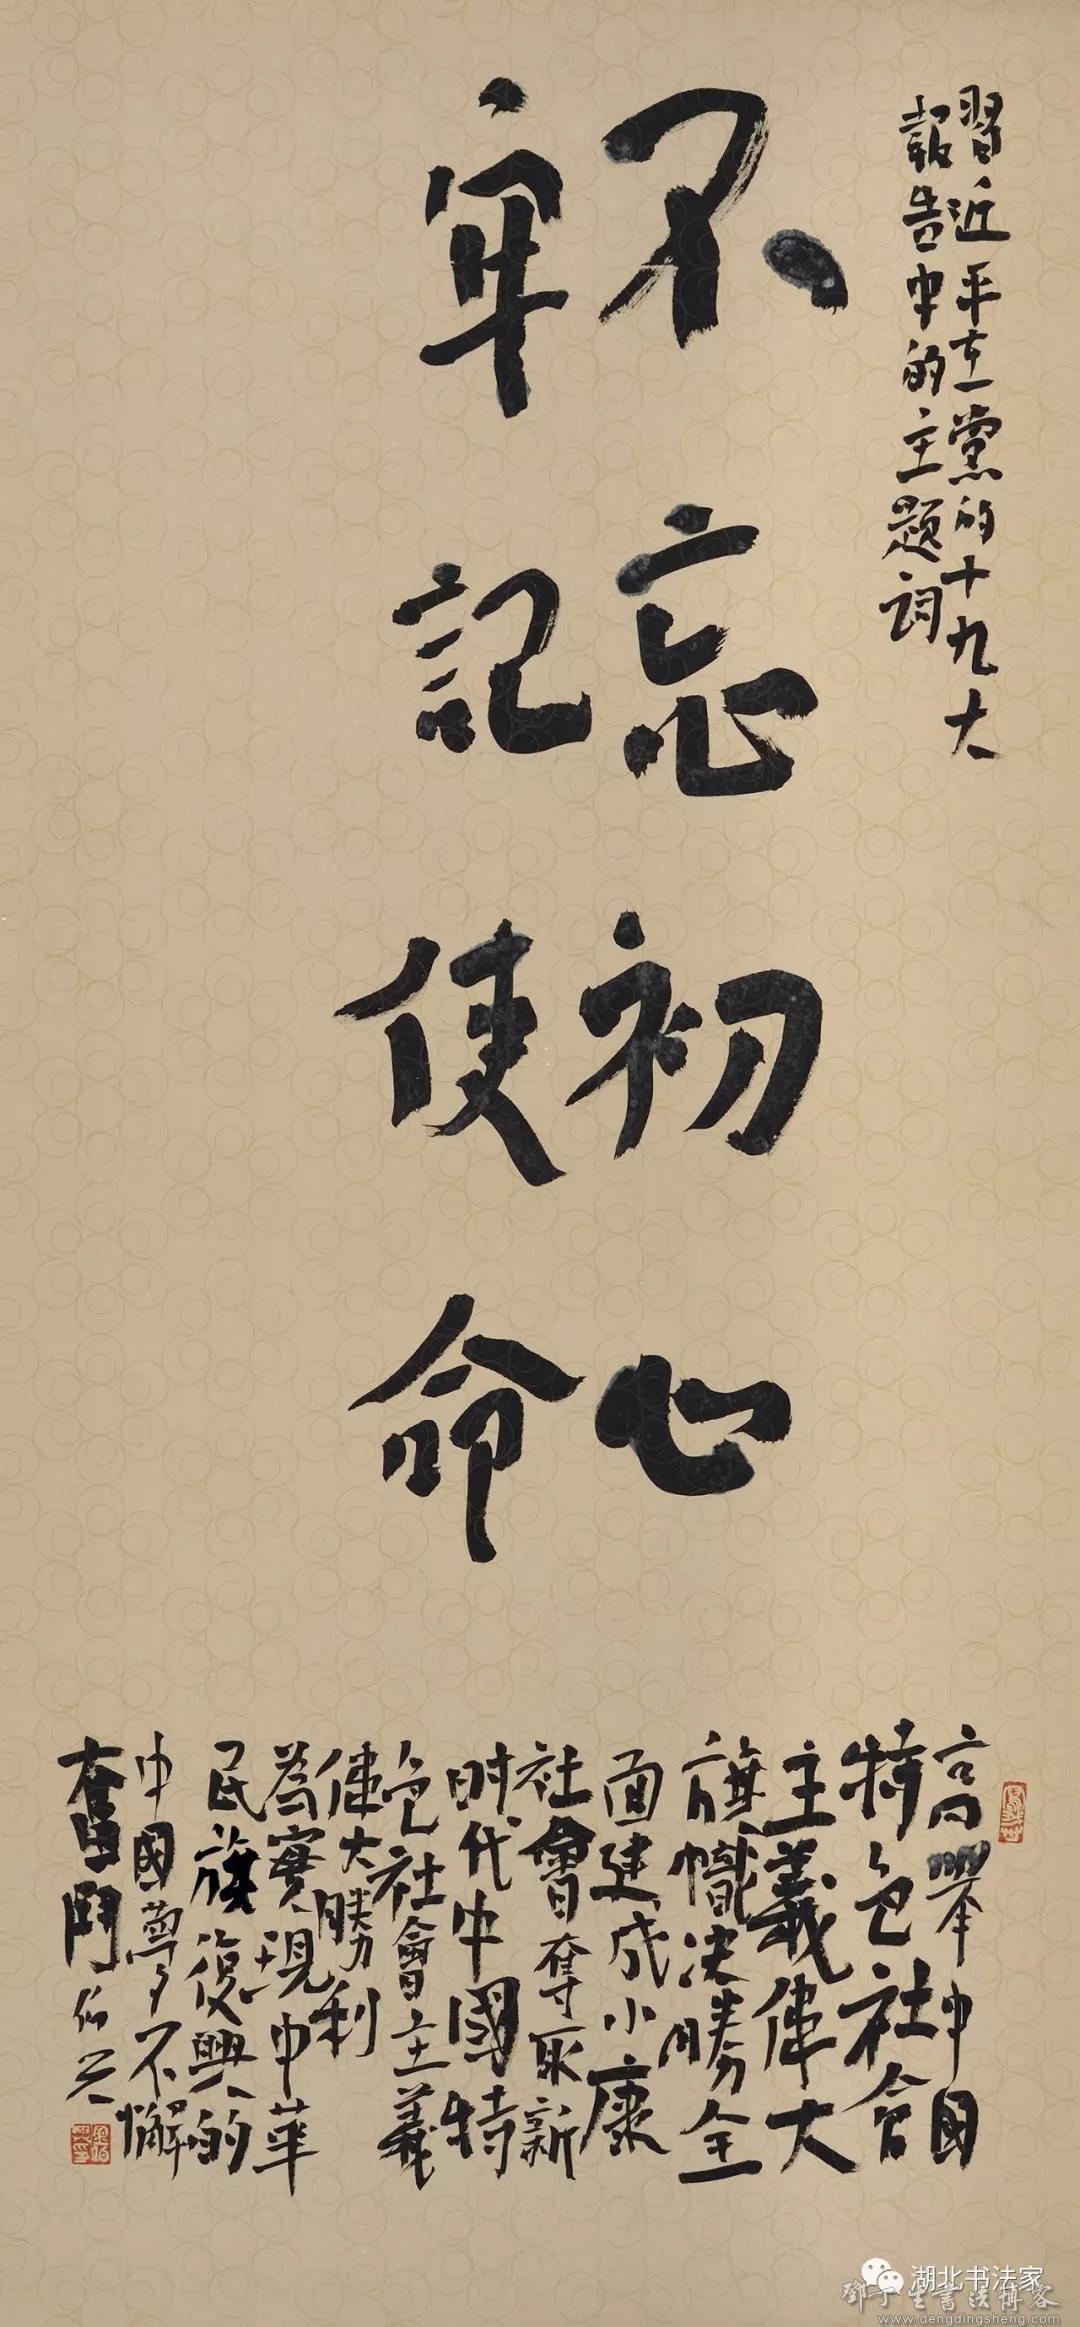 習近平在黨的十九大
報告中的主题詞
不忘初心
牢記使命
高舉中国
特色社会
主義偉大
旗幟决勝全
面建成小康
社會奪取新
时代中國特
色社會主義
偉大勝利
為實現中華
民族復興的
中國夢不懈
奮鬥 伯兴
湖北书法家
鄧丁生書法博客
www.dengdingsheng.com